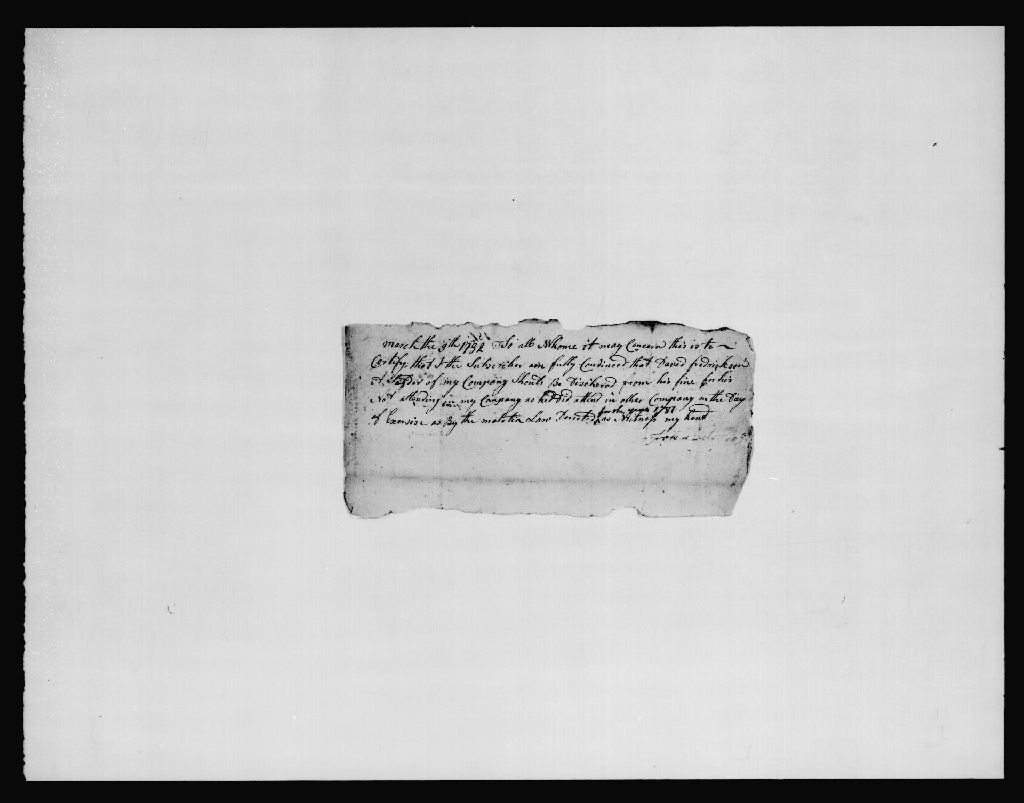 march the 9th 1792 To all Whome it may Concearn this is to
Certify that I the Subscriber am fully Convinced that David fedrickson
A Solder of my Company Should Be Discharged from his fine for his
Not attending in my Company as he Did attend in other Company on the Day
of Exersise as By the malitia Law Directed for the year 1791 as Witness my hand